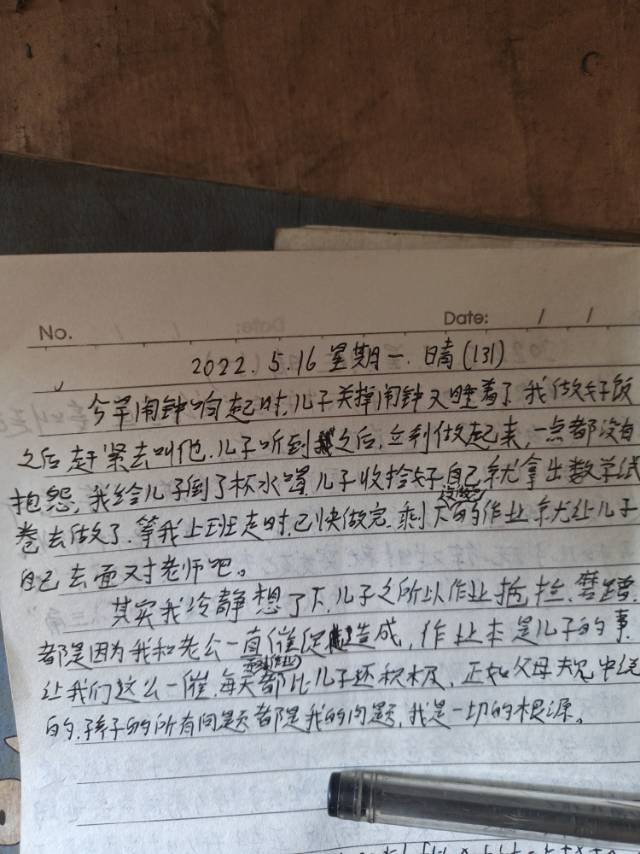 No.
Date: / /
2022.5.16 星期一.晴(131)
今早闹钟响起时,儿子关掉闹钟又睡着了.我做好饭
之后赶紧去叫他.儿子听到之后,立刻做起来,一点都没有
抱怨,我给儿子倒了杯水喝.儿子收拾好自己就拿出数学试
卷去做了.等我上班走时,已快做完.剩下没做完的作业就让儿子
自己去面对老师吧。
其实我冷静想了下,儿子之所以作业拖拉.磨蹭.
都是因为我和老公一直催促造成,作业本是儿子的事.
让我们这么一催,每天都比儿子还积极,正如父母规中说
的.孩子的所有问题都是我的问题,我是一切的根源。